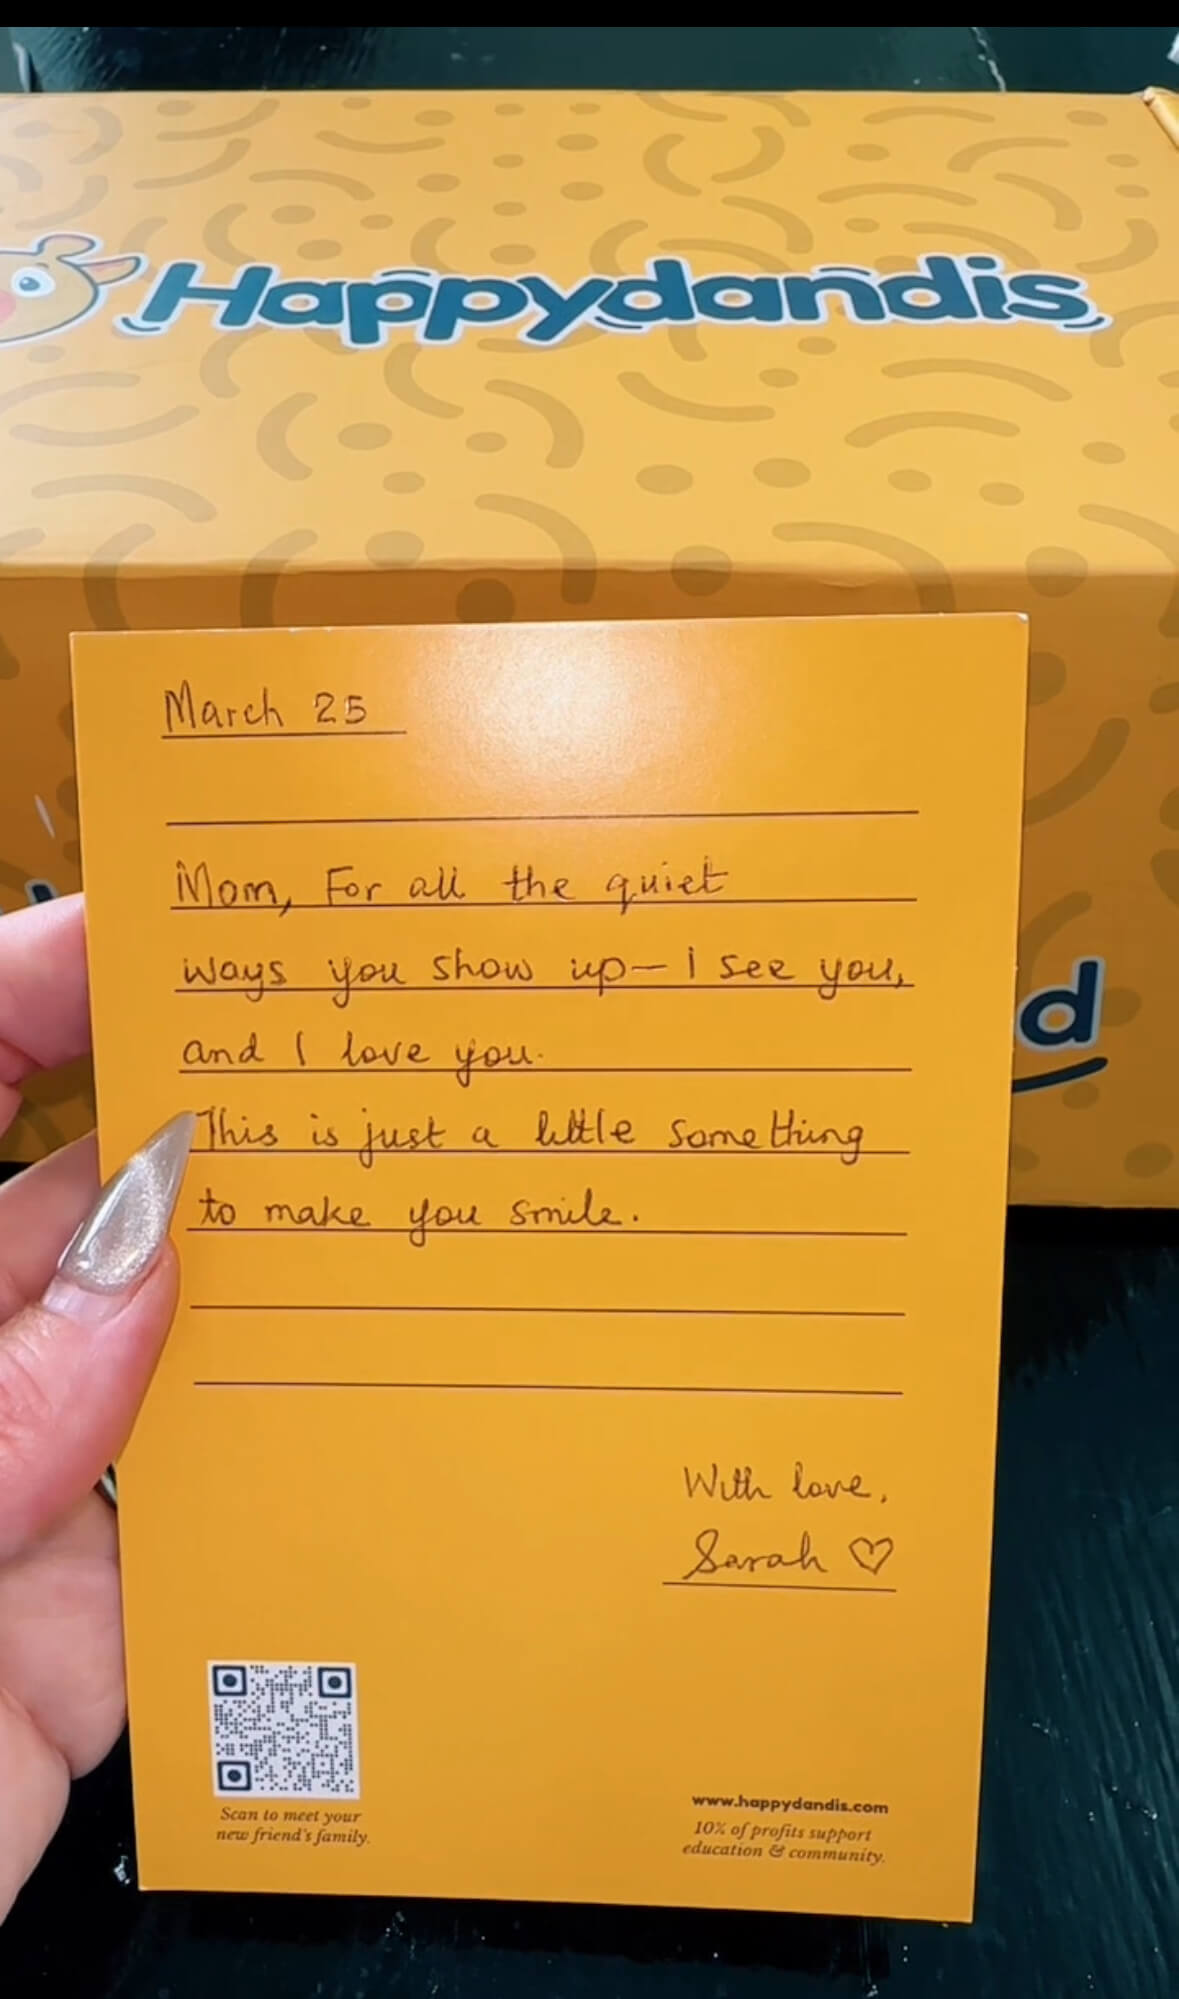 Happydandis
d
March 25
Mom, For all the quiet
ways you show up— I see you,
and I love you.
This is just a little something
to make you smile.
With love,
Sarah ♡
Scan to meet your
new friend's family.
www.happydandis.com
10% of profits support
education & community.